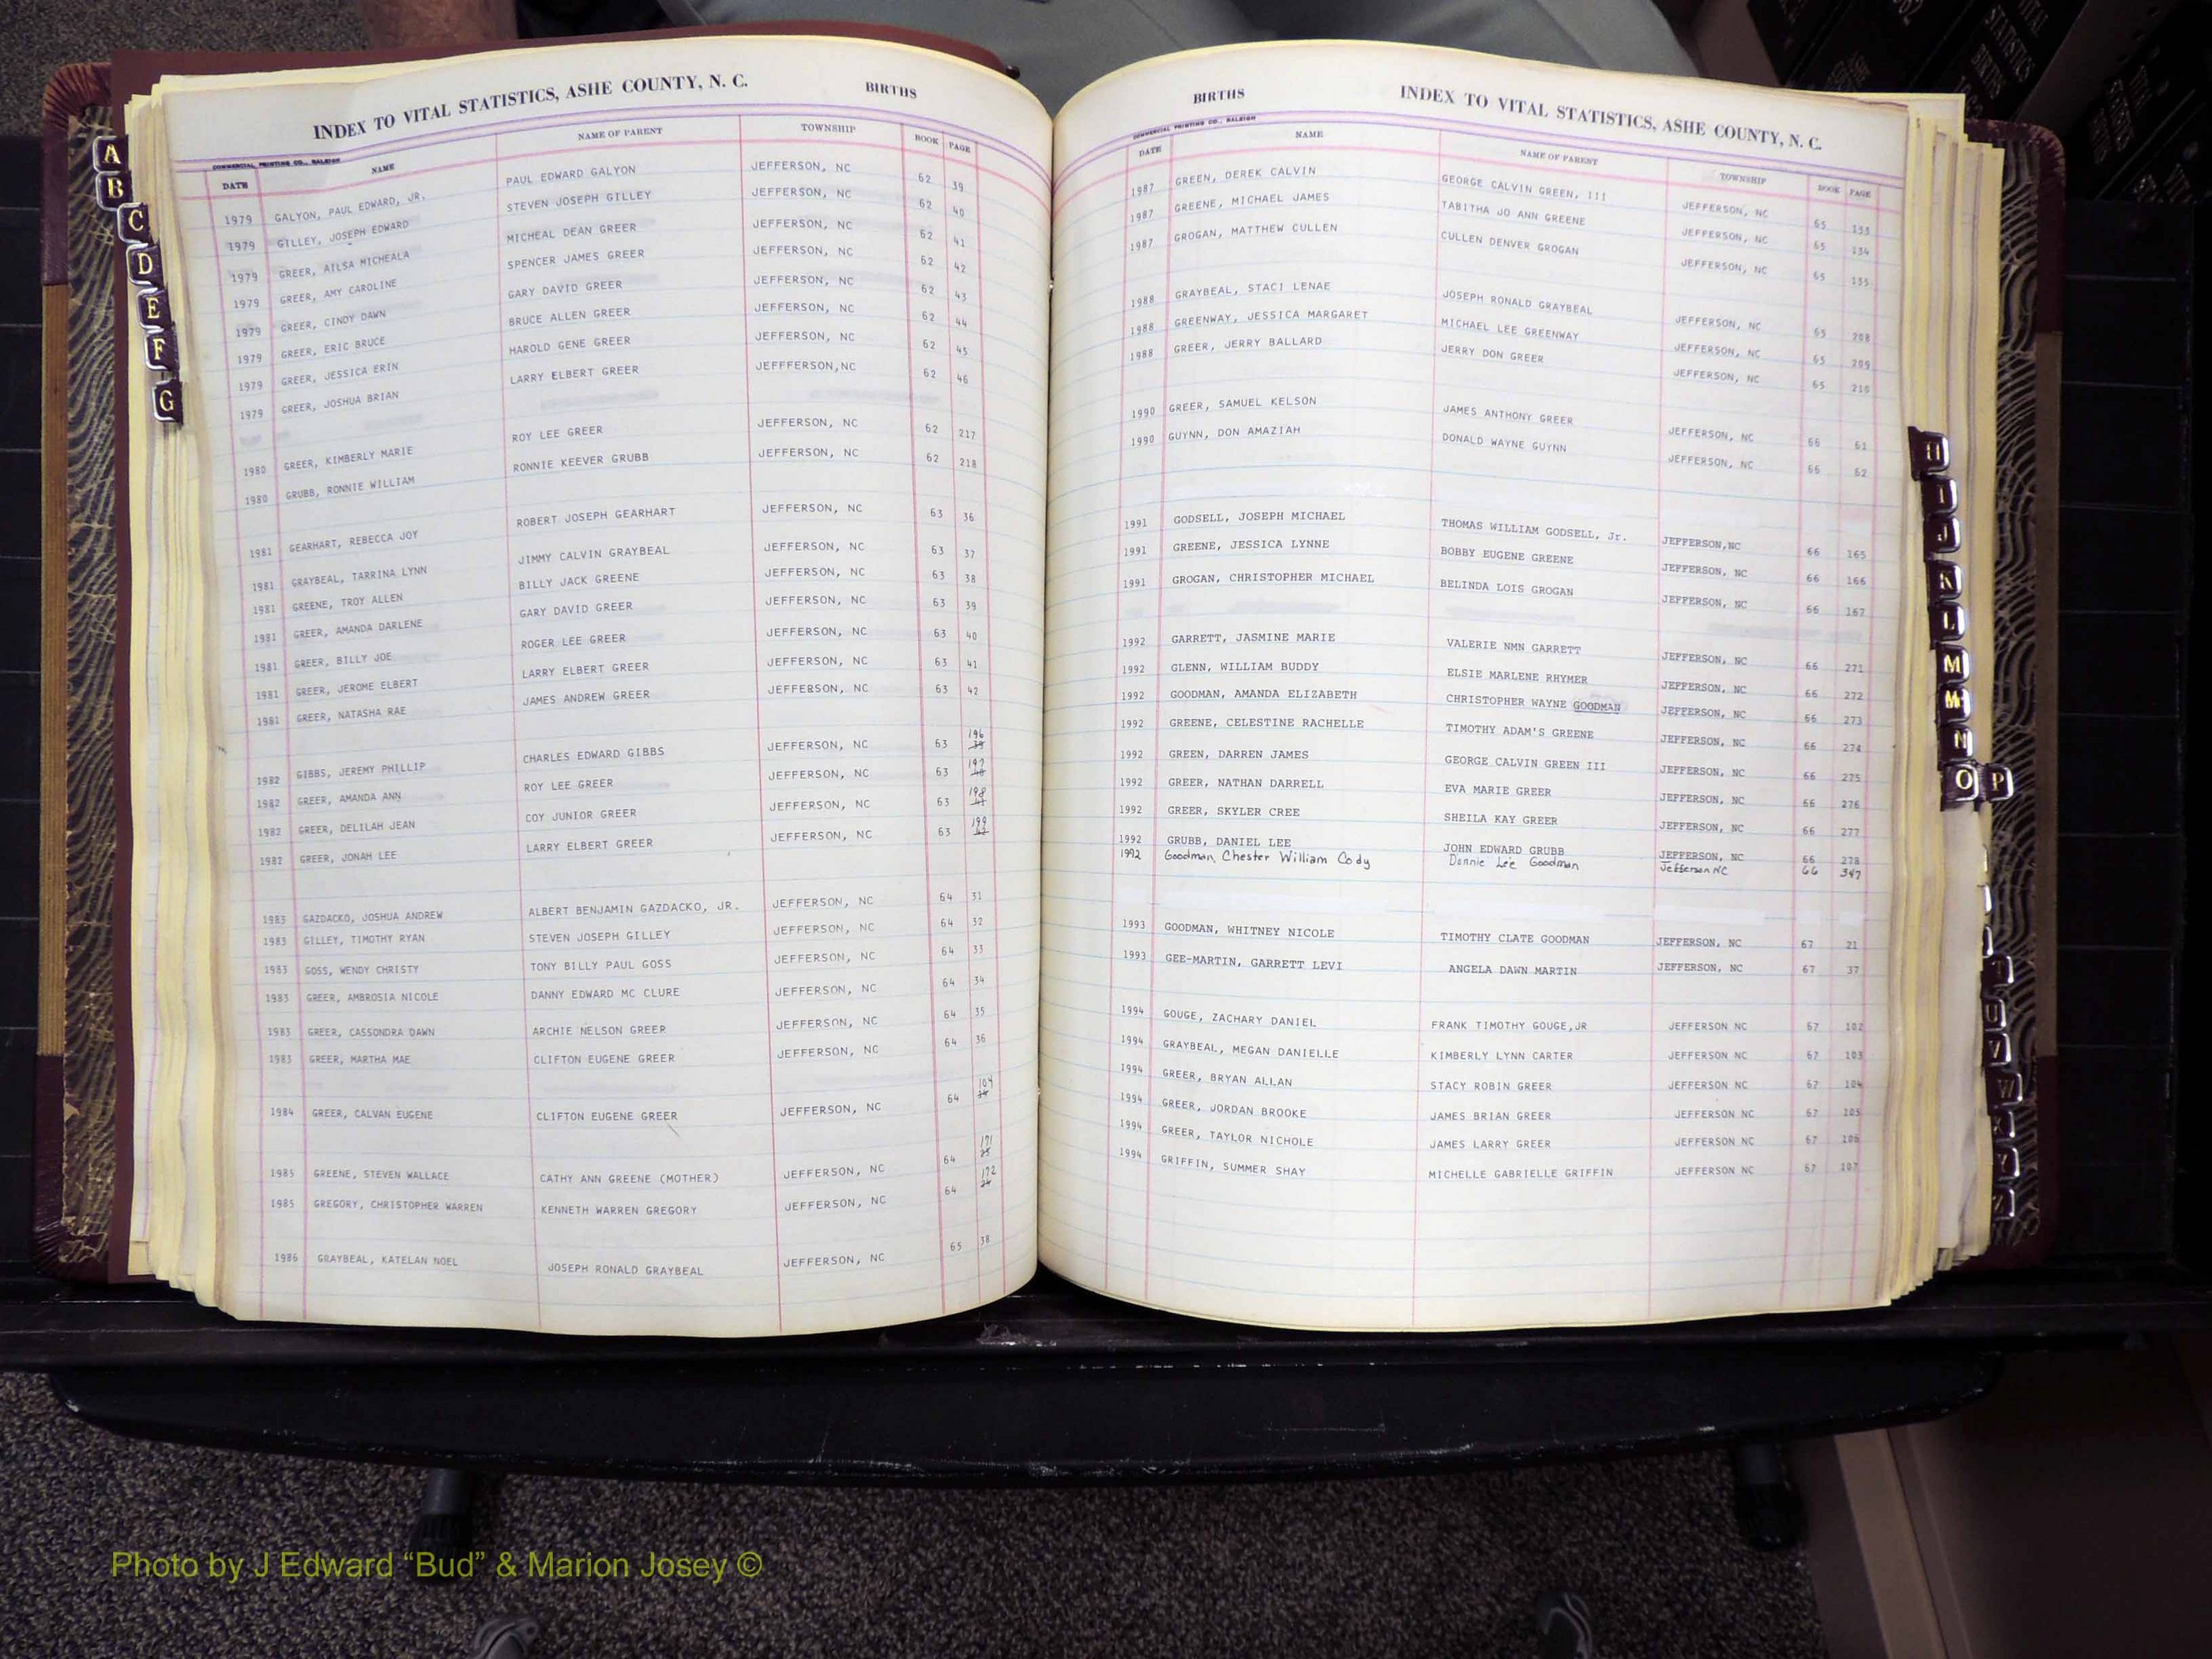 INDEX TO VITAL STATISTICS, ASHE COUNTY, N. C. BIRTHS
COMMERCIAL PRINTING CO., RALEIGH
DATE NAME NAME OF PARENT TOWNSHIP BOOK PAGE
1979 GALYON, PAUL EDWARD, JR. PAUL EDWARD GALYON JEFFERSON, NC 62 39
1979 GILLEY, JOSEPH EDWARD STEVEN JOSEPH GILLEY JEFFERSON, NC 62 40
1979 GREER, AILSA MICHEALA MICHEAL DEAN GREER JEFFERSON, NC 62 41
1979 GREER, AMY CAROLINE SPENCER JAMES GREER JEFFERSON, NC 62 42
1979 GREER, CINDY DAWN GARY DAVID GREER JEFFERSON, NC 62 43
1979 GREER, ERIC BRUCE BRUCE ALLEN GREER JEFFERSON, NC 62 44
1979 GREER, JESSICA ERIN HAROLD GENE GREER JEFFERSON, NC 62 45
1979 GREER, JOSHUA BRIAN LARRY ELBERT GREER JEFFFERSON,NC 62 46
1980 GREER, KIMBERLY MARIE ROY LEE GREER JEFFERSON, NC 62 217
1980 GRUBB, RONNIE WILLIAM RONNIE KEEVER GRUBB JEFFERSON, NC 62 218
1981 GEARHART, REBECCA JOY ROBERT JOSEPH GEARHART JEFFERSON, NC 63 36
1981 GRAYBEAL, TARRINA LYNN JIMMY CALVIN GRAYBEAL JEFFERSON, NC 63 37
1981 GREENE, TROY ALLEN BILLY JACK GREENE JEFFERSON, NC 63 38
1981 GREER, AMANDA DARLENE GARY DAVID GREER JEFFERSON, NC 63 39
1981 GREER, BILLY JOE ROGER LEE GREER JEFFERSON, NC 63 40
1981 GREER, JEROME ELBERT LARRY ELBERT GREER JEFFERSON, NC 63 41
1981 GREER, NATASHA RAE JAMES ANDREW GREER JEFFERSON, NC 63 42
1982 GIBBS, JEREMY PHILLIP CHARLES EDWARD GIBBS JEFFERSON, NC 63 196
1982 GREER, AMANDA ANN ROY LEE GREER JEFFERSON, NC 63 197
1982 GREER, DELILAH JEAN COY JUNIOR GREER JEFFERSON, NC 63 198
1982 GREER, JONAH LEE LARRY ELBERT GREER JEFFERSON, NC 63 199
1983 GAZDACKO, JOSHUA ANDREW ALBERT BENJAMIN GAZDACKO, JR. JEFFERSON, NC 64 31
1983 GILLEY, TIMOTHY RYAN STEVEN JOSEPH GILLEY JEFFERSON, NC 64 32
1983 GOSS, WENDY CHRISTY TONY BILLY PAUL GOSS JEFFERSON, NC 64 33
1983 GREER, AMBROSIA NICOLE DANNY EDWARD MC CLURE JEFFERSON, NC 64 34
1983 GREER, CASSONDRA DAWN ARCHIE NELSON GREER JEFFERSON, NC 64 35
1983 GREER, MARTHA MAE CLIFTON EUGENE GREER JEFFERSON, NC 64 36
1984 GREER, CALVAN EUGENE CLIFTON EUGENE GREER JEFFERSON, NC 64 104
1985 GREENE, STEVEN WALLACE CATHY ANN GREENE (MOTHER) JEFFERSON, NC 64 171
1985 GREGORY, CHRISTOPHER WARREN KENNETH WARREN GREGORY JEFFERSON, NC 64 172
1986 GRAYBEAL, KATELAN NOEL JOSEPH RONALD GRAYBEAL JEFFERSON, NC 65 38
BIRTHS INDEX TO VITAL STATISTICS, ASHE COUNTY, N. C.
COMMERCIAL PRINTING CO., RALEIGH
DATE NAME NAME OF PARENT TOWNSHIP BOOK PAGE
1987 GREEN, DEREK CALVIN GEORGE CALVIN GREEN, III JEFFERSON, NC 65 133
1987 GREENE, MICHAEL JAMES TABITHA JO ANN GREENE JEFFERSON, NC 65 134
1987 GROGAN, MATTHEW CULLEN CULLEN DENVER GROGAN JEFFERSON, NC 65 135
1988 GRAYBEAL, STACI LENAE JOSEPH RONALD GRAYBEAL JEFFERSON, NC 65 208
1988 GREENWAY, JESSICA MARGARET MICHAEL LEE GREENWAY JEFFERSON, NC 65 209
1988 GREER, JERRY BALLARD JERRY DON GREER JEFFERSON, NC 65 210
1990 GREER, SAMUEL KELSON JAMES ANTHONY GREER JEFFERSON, NC 66 61
1990 GUYNN, DON AMAZIAH DONALD WAYNE GUYNN JEFFERSON, NC 66 62
1991 GODSELL, JOSEPH MICHAEL THOMAS WILLIAM GODSELL, Jr. JEFFERSON,NC 66 165
1991 GREENE, JESSICA LYNNE BOBBY EUGENE GREENE JEFFERSON, NC 66 166
1991 GROGAN, CHRISTOPHER MICHAEL BELINDA LOIS GROGAN JEFFERSON, NC 66 167
1992 GARRETT, JASMINE MARIE VALERIE NMN GARRETT JEFFERSON, NC 66 271
1992 GLENN, WILLIAM BUDDY ELSIE MARLENE RHYMER JEFFERSON, NC 66 272
1992 GOODMAN, AMANDA ELIZABETH CHRISTOPHER WAYNE GOODMAN JEFFERSON, NC 66 273
1992 GREENE, CELESTINE RACHELLE TIMOTHY ADAM'S GREENE JEFFERSON, NC 66 274
1992 GREEN, DARREN JAMES GEORGE CALVIN GREEN III JEFFERSON, NC 66 275
1992 GREER, NATHAN DARRELL EVA MARIE GREER JEFFERSON, NC 66 276
1992 GREER, SKYLER CREE SHEILA KAY GREER JEFFERSON, NC 66 277
1992 GRUBB, DANIEL LEE JOHN EDWARD GRUBB JEFFERSON, NC 66 278
1992 Goodman, Chester William Cody Donnie Lee Goodman Jefferson NC 66 347
1993 GOODMAN, WHITNEY NICOLE TIMOTHY CLATE GOODMAN JEFFERSON, NC 67 21
1993 GEE-MARTIN, GARRETT LEVI ANGELA DAWN MARTIN JEFFERSON, NC 67 37
1994 GOUGE, ZACHARY DANIEL FRANK TIMOTHY GOUGE,JR JEFFERSON NC 67 102
1994 GRAYBEAL, MEGAN DANIELLE KIMBERLY LYNN CARTER JEFFERSON NC 67 103
1994 GREER, BRYAN ALLAN STACY ROBIN GREER JEFFERSON NC 67 104
1994 GREER, JORDAN BROOKE JAMES BRIAN GREER JEFFERSON NC 67 105
1994 GREER, TAYLOR NICHOLE JAMES LARRY GREER JEFFERSON NC 67 106
1994 GRIFFIN, SUMMER SHAY MICHELLE GABRIELLE GRIFFIN JEFFERSON NC 67 107
A
B
C
D
E
F
G
H
I
J
K
L
M
Mc
N
O P
T
U
V
W
Photo by J Edward “Bud” & Marion Josey ©